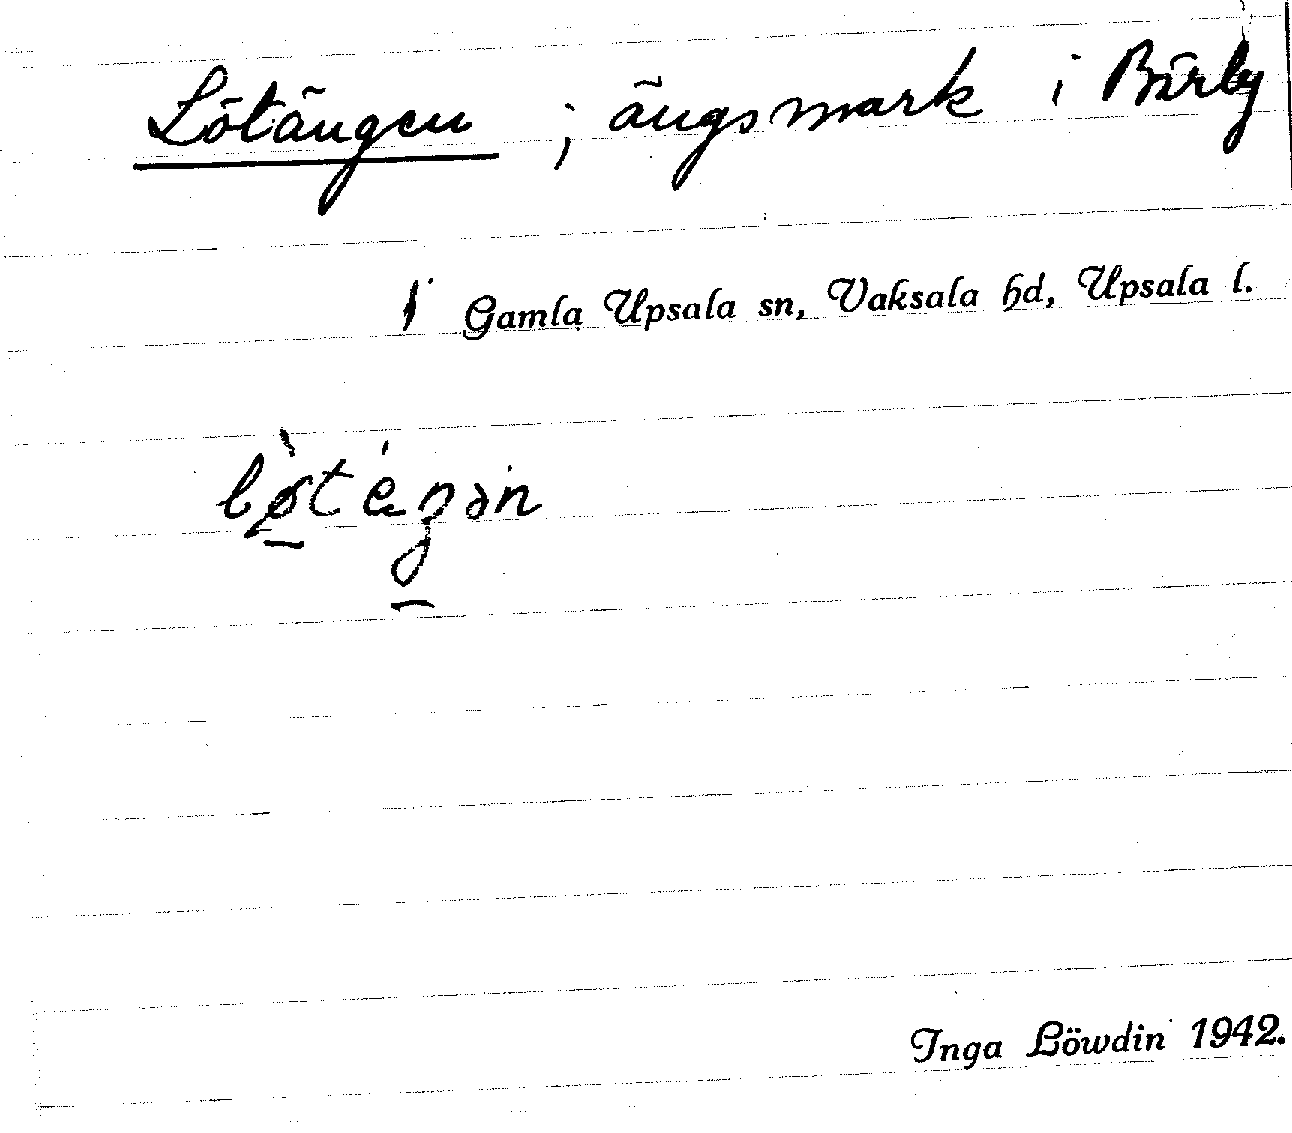 Lötängen ; ängsmark i Bärby
i Gamla Upsala sn, Vaksala hd, Upsala l.
Inga Löwdin 1942.